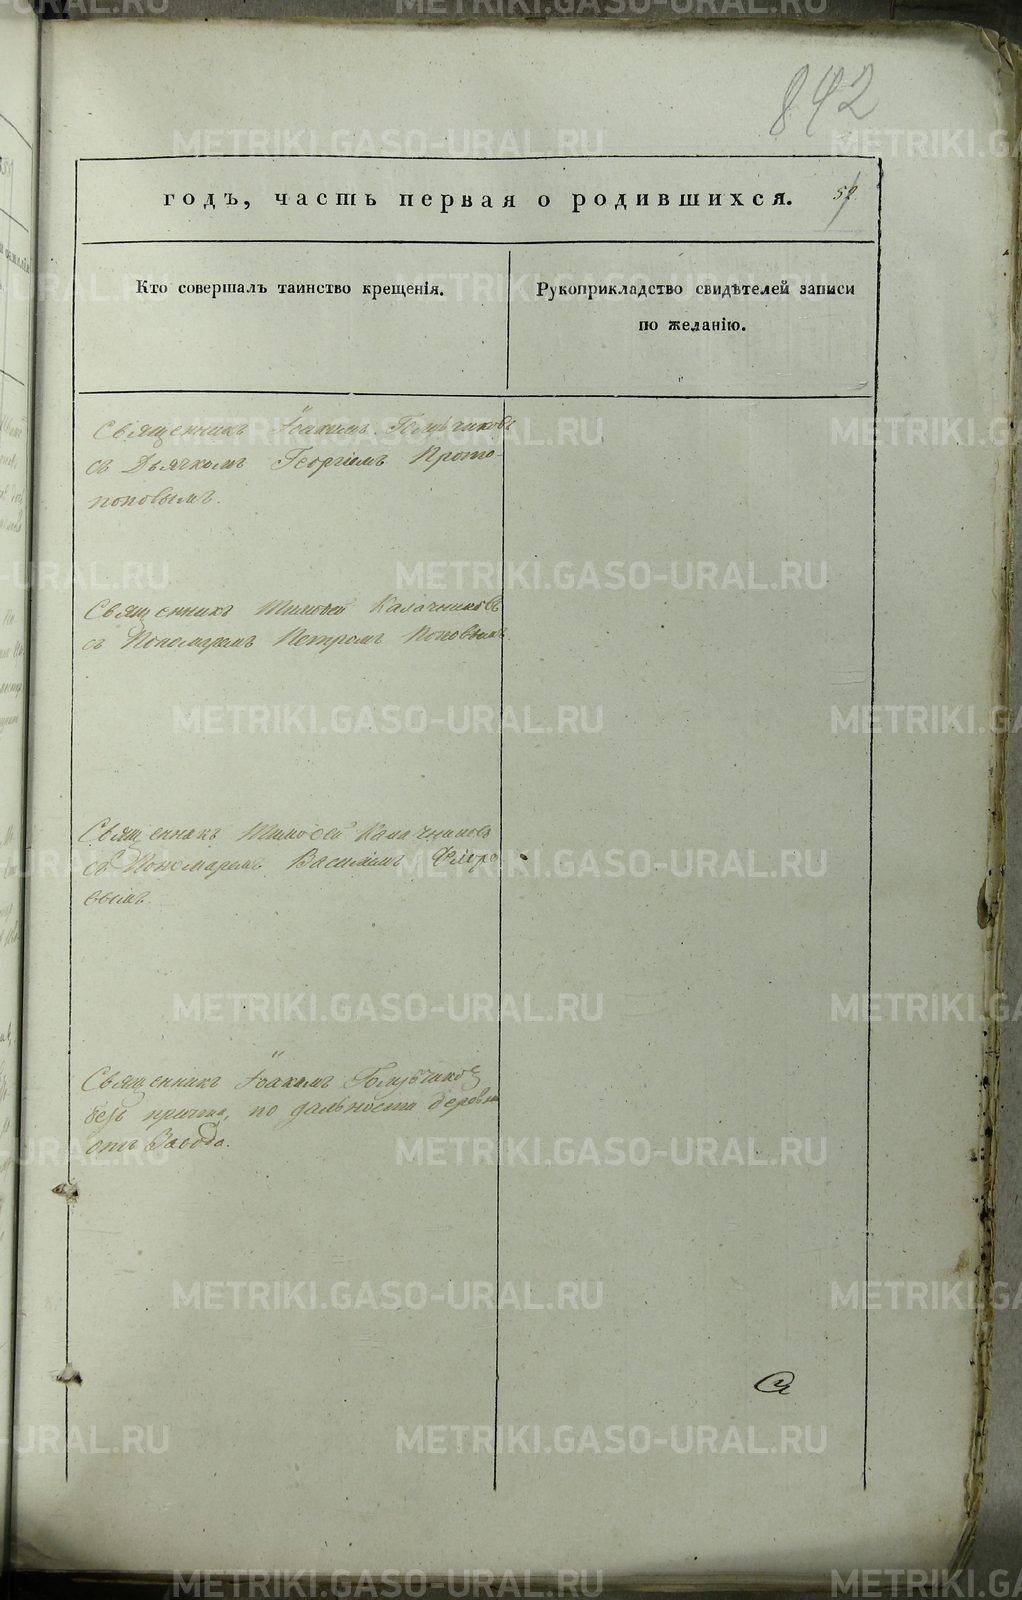 842
годъ, часть первая о родившихся.
Кто совершалъ таинство крещенія.
Рукоприкладство свидѣтелей записи
по желанію.
Священникъ Іоакимъ Голубчиковъ
съ Дьячкомъ Георгіемъ Прото-
поповымъ.
Священникъ Тимофей Калачниковъ
съ Пономаремъ Петромъ Поповымъ.
Священникъ Тимофей Калачниковъ
съ Пономаремъ Василіемъ Флоро-
вымъ.
Священникъ Іоакимъ Голубчиковъ
безъ причта, по дальности деревни
отъ Завода.
METRIKI.GASO-URAL.RU